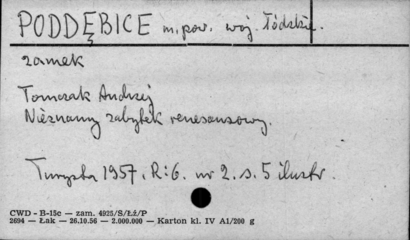 PODDĘBICE m. pow. woj. Łódzkie.
zamek
Tomczak Andrzej
Nieznany zabytek renesansowy.
Turysta 1957. R:6. nr 2. s. 5 ilustr.
CWD - B-15c — zam. 4925/S/Łź/P
2694 — Łak — 26.10.56 — 2.000.000 — Karton kl. IV A1/200 g